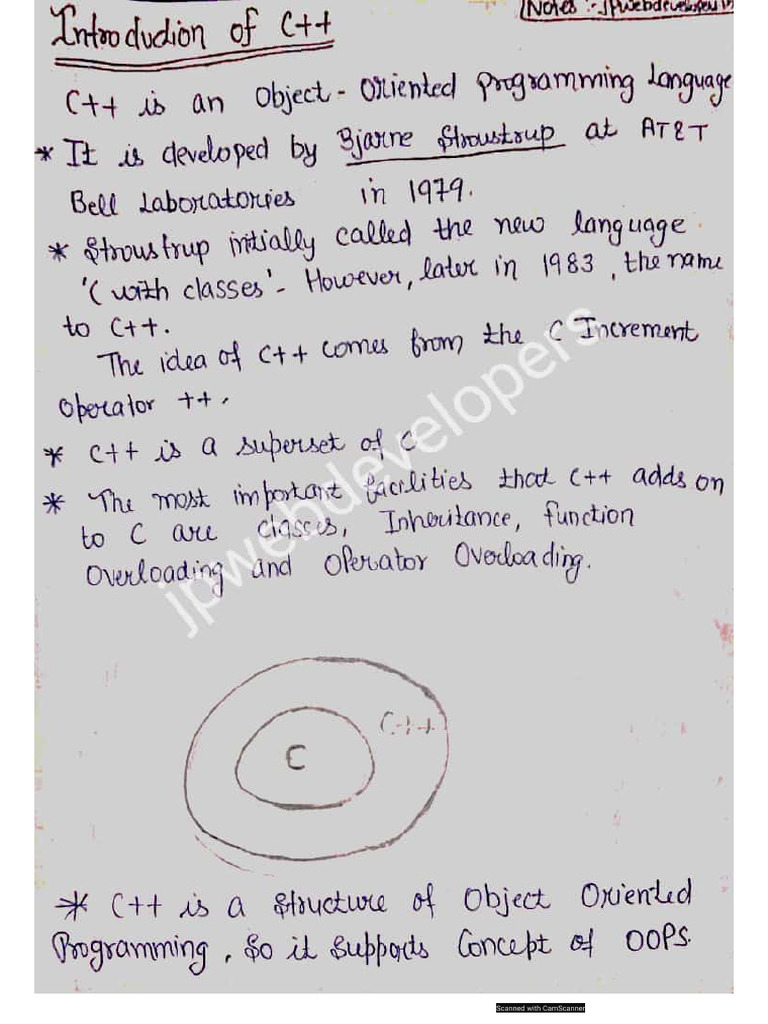 Notes :- jpwebdevelopers
Introduction of C++
C++ is an Object-Oriented Programming Language
* It is developed by Bjarne Stroustrup at AT&T
Bell Laboratories in 1979.
* Stroustrup initially called the new language
'C with classes'- However, later in 1983, the name
to C++.
The idea of C++ comes from the C Increment
Operator ++.
* C++ is a superset of C
* The most important facilities that C++ adds on
to C are classes, Inheritance, function
Overloading and Operator Overloading.
jpwebdevelopers
C++
C
* C++ is a structure of Object Oriented
Programming, So it supports Concept of OOPS.
Scanned with CamScanner